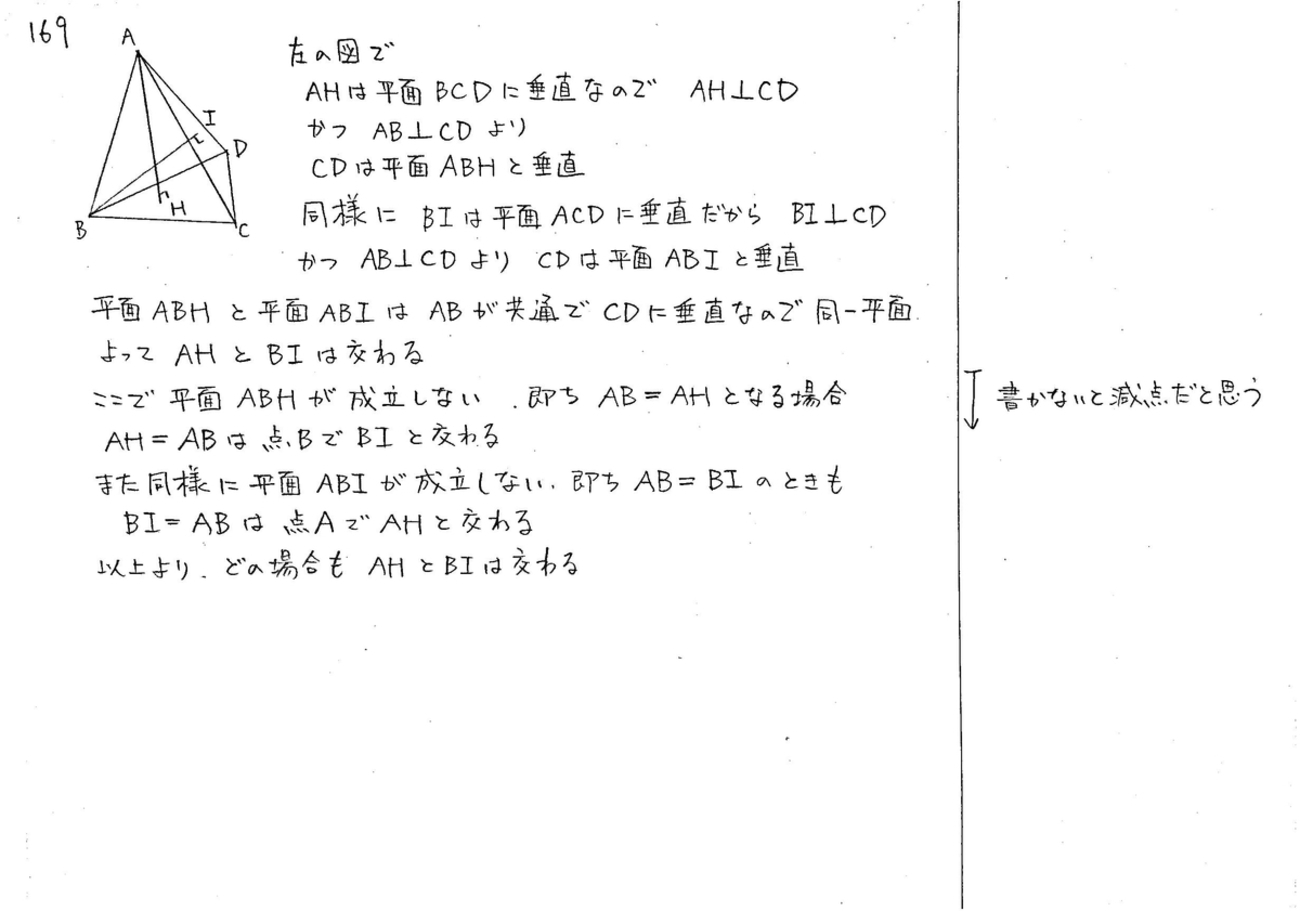 169
A
I
D
H
B
C
左の図で
AHは平面BCDに垂直なので AH⊥CD
かつ AB⊥CDより
CDは平面ABHと垂直
同様に BIは平面ACDに垂直だから BI⊥CD
かつ AB⊥CDより CDは平面ABIと垂直
平面ABHと平面ABIはABが共通でCDに垂直なので同一平面.
よってAHとBIは交わる
ここで平面ABHが成立しない、即ちAB=AHとなる場合
AH=ABは点BでBIと交わる
また同様に平面ABIが成立しない、即ちAB=BIのときも
BI=ABは点AでAHと交わる
以上より、どの場合もAHとBIは交わる
書かないと減点だと思う